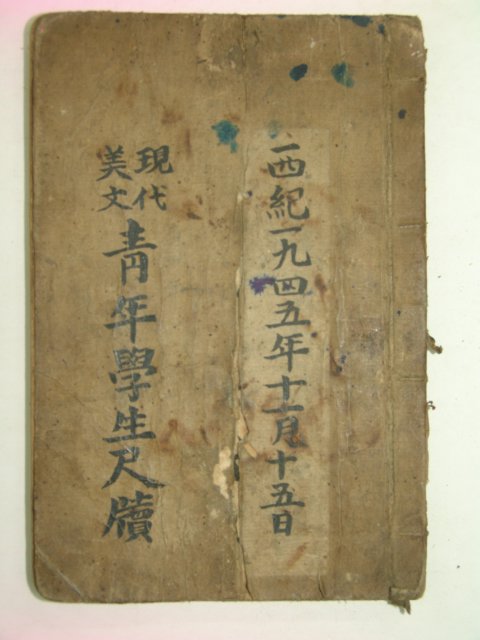 一西紀一九四五年十一月十五日
現代
美文
青年學生尺牘